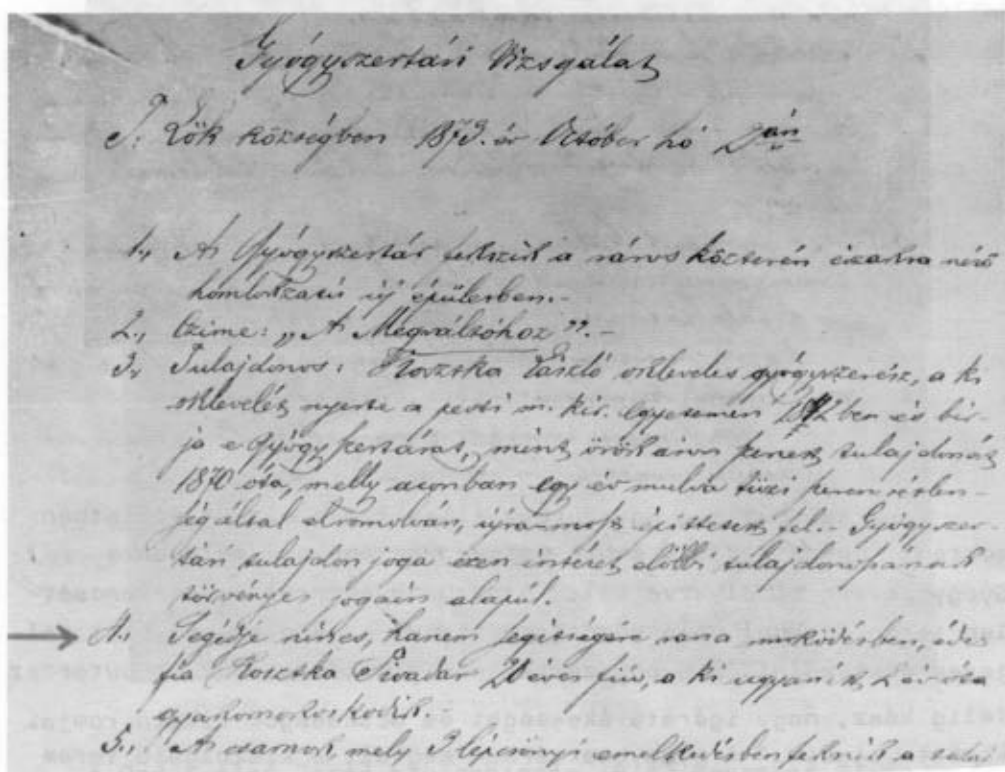 Gyógyszertári Vizsgálat
T. Lök községben 1873. év October hó 2 án
1., A Gyógyszertár fekszik a város közterén északra néző
homlokzatú új épületben.-
2., Czime: „A Megváltóhoz".-
3., Tulajdonos: Kosztka László okleveles gyógyszerész, a ki
oklevelét nyerte a pesti m. kir. egyetemen ben és bir-
ja e gyógyszertárat, mint örökáron szerzett tulajdonát
1870 óta, melly azonban egy év mulva tűzi szerencsétlen-
ség által elromolván, újra most építtetett fel.- Gyógyszer-
tári tulajdon joga ezen intézet előbbi tulajdonosának
törvényes jogain alapúl.
4., Segédje nincs, hanem segítségére van a működésben, édes
fia Kosztka Tivadar 20 éves fiú, a ki ugyanitt 2 év óta
gyakornokoskodik.-
5., A csarnok mely 3 lépcsőnyi emelkedésben fekszik a